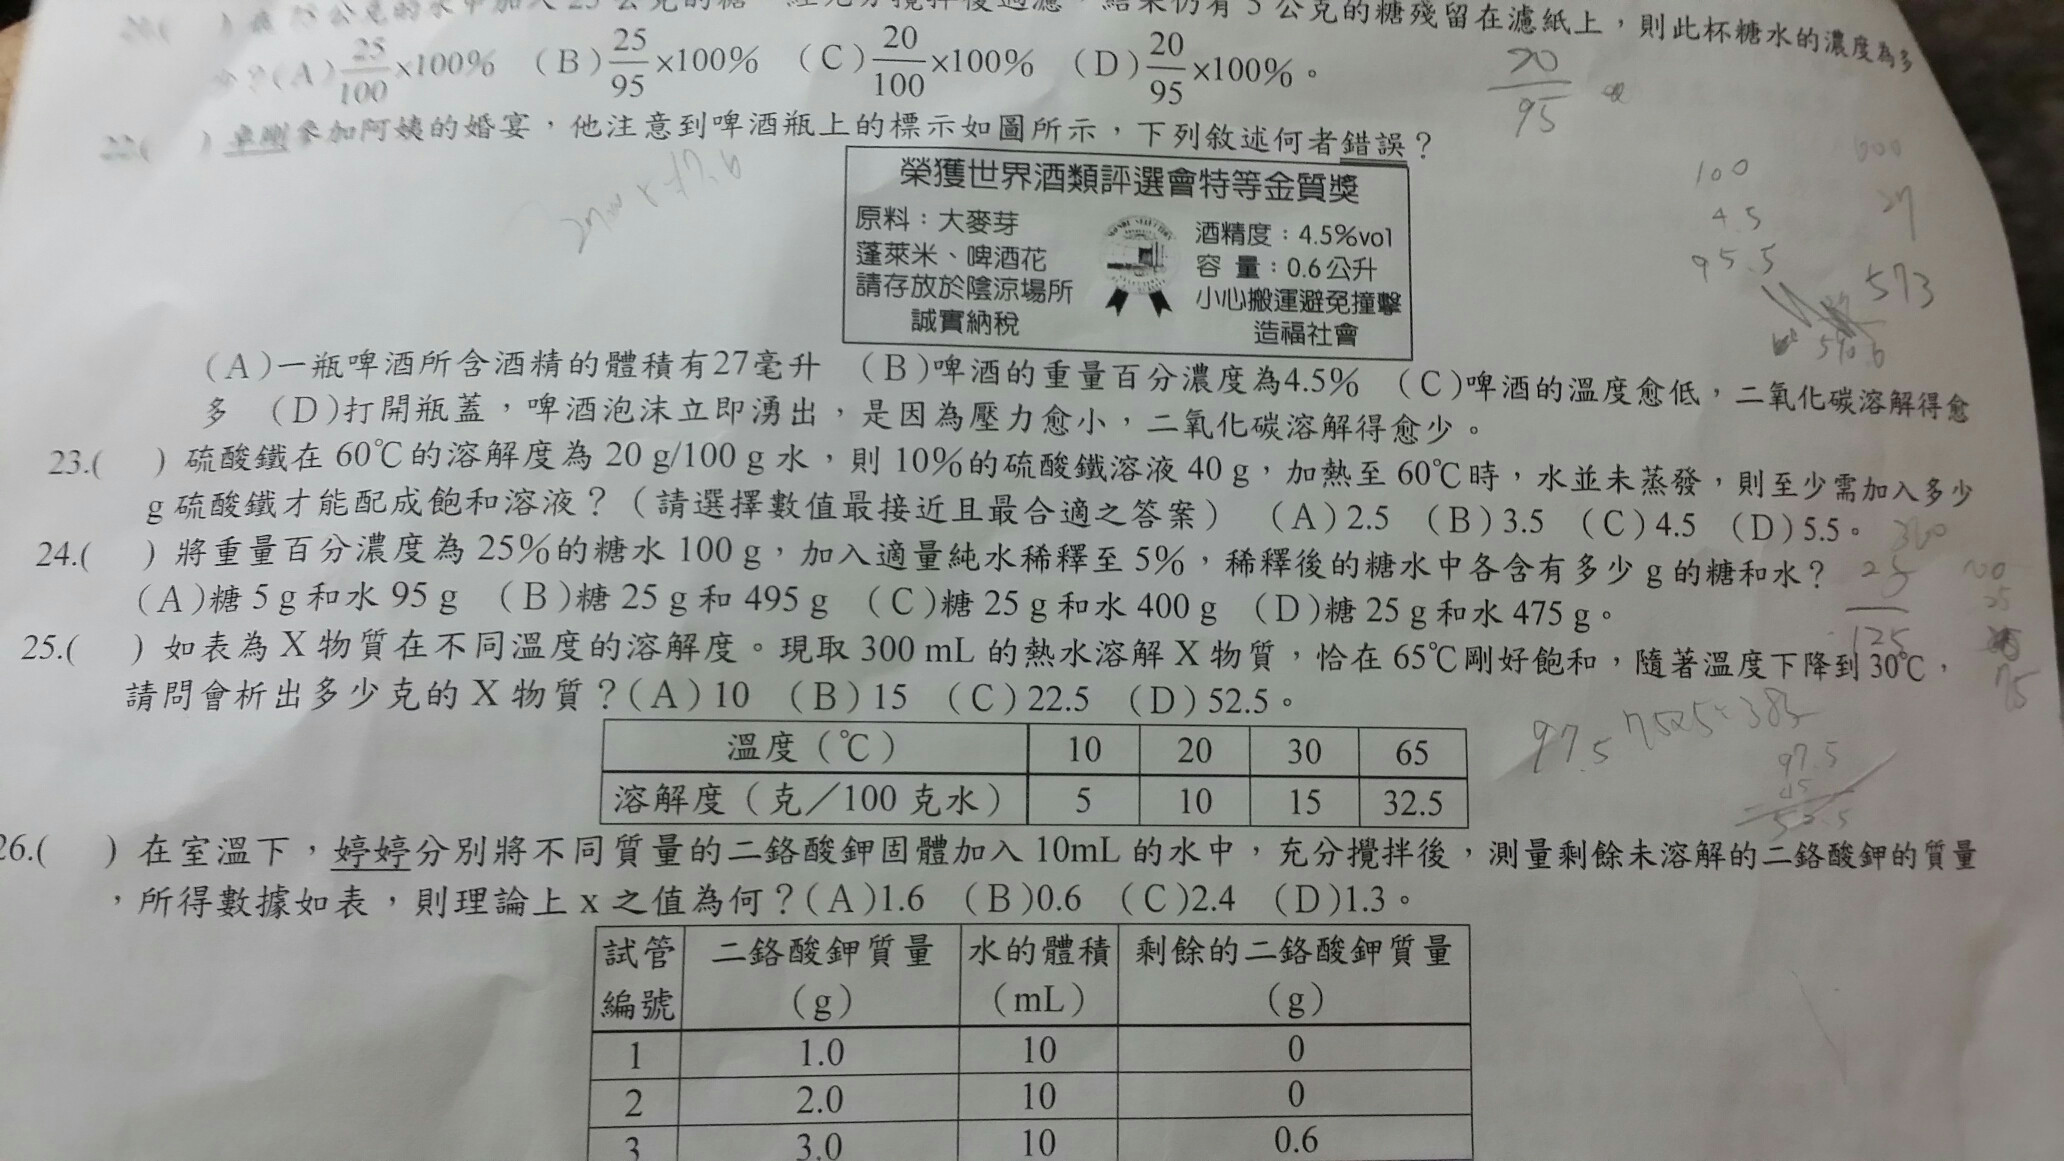 公克的水中加入 25 公克的糖，經充分攪拌後過濾，結果仍有 5 公克的糖殘留在濾紙上，則此杯糖水的濃度為多
少？(A) 25/100 ×100% (B) 25/95 ×100% (C) 20/100 ×100% (D) 20/95 ×100%。
20/95
22.( ) 參加阿姨的婚宴，他注意到啤酒瓶上的標示如圖所示，下列敘述何者錯誤？
榮獲世界酒類評選會特等金質獎
原料：大麥芽
蓬萊米、啤酒花
請存放於陰涼場所
誠實納稅
酒精度：4.5%vol
容 量：0.6公升
小心搬運避免撞擊
造福社會
100
4.5
95.5
600
27
573
(A)一瓶啤酒所含酒精的體積有27毫升 (B)啤酒的重量百分濃度為4.5% (C)啤酒的溫度愈低，二氧化碳溶解得愈
多 (D)打開瓶蓋，啤酒泡沫立即湧出，是因為壓力愈小，二氧化碳溶解得愈少。
23.( ) 硫酸鐵在 60℃的溶解度為 20 g/100 g 水，則 10%的硫酸鐵溶液 40 g，加熱至 60℃時，水並未蒸發，則至少需加入多少
g 硫酸鐵才能配成飽和溶液？（請選擇數值最接近且最合適之答案） (A)2.5 (B)3.5 (C)4.5 (D)5.5。
24.( ) 將重量百分濃度為 25%的糖水 100 g，加入適量純水稀釋至 5%，稀釋後的糖水中各含有多少 g 的糖和水？
(A)糖 5 g 和水 95 g (B)糖 25 g 和 495 g (C)糖 25 g 和水 400 g (D)糖 25 g 和水 475 g。
25
125
25.( ) 如表為 X 物質在不同溫度的溶解度。現取 300 mL 的熱水溶解 X 物質，恰在 65℃剛好飽和，隨著溫度下降到 30℃，
請問會析出多少克的 X 物質？(A)10 (B)15 (C)22.5 (D)52.5。
75
97.5
97.5
溫度（℃） 10 20 30 65
溶解度（克／100 克水） 5 10 15 32.5
26.( ) 在室溫下，婷婷分別將不同質量的二鉻酸鉀固體加入 10mL 的水中，充分攪拌後，測量剩餘未溶解的二鉻酸鉀的質量
，所得數據如表，則理論上 x 之值為何？(A)1.6 (B)0.6 (C)2.4 (D)1.3。
試管編號 二鉻酸鉀質量（g） 水的體積（mL） 剩餘的二鉻酸鉀質量（g）
1 1.0 10 0
2 2.0 10 0
3 3.0 10 0.6